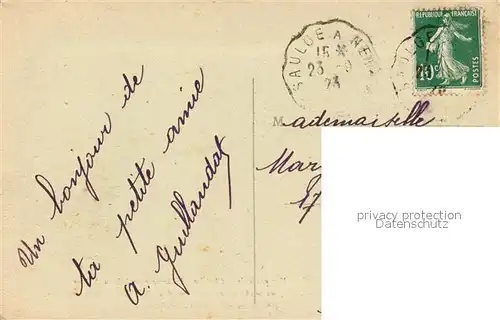 Un bonjour de
ta petite amie
A. Guillandat
SAULGE A
15 *
23 -9
23
REPUBLIQUE FRANÇAISE
10c
POSTES
Mademoiselle
Mar
17
privacy protection
Datenschutz